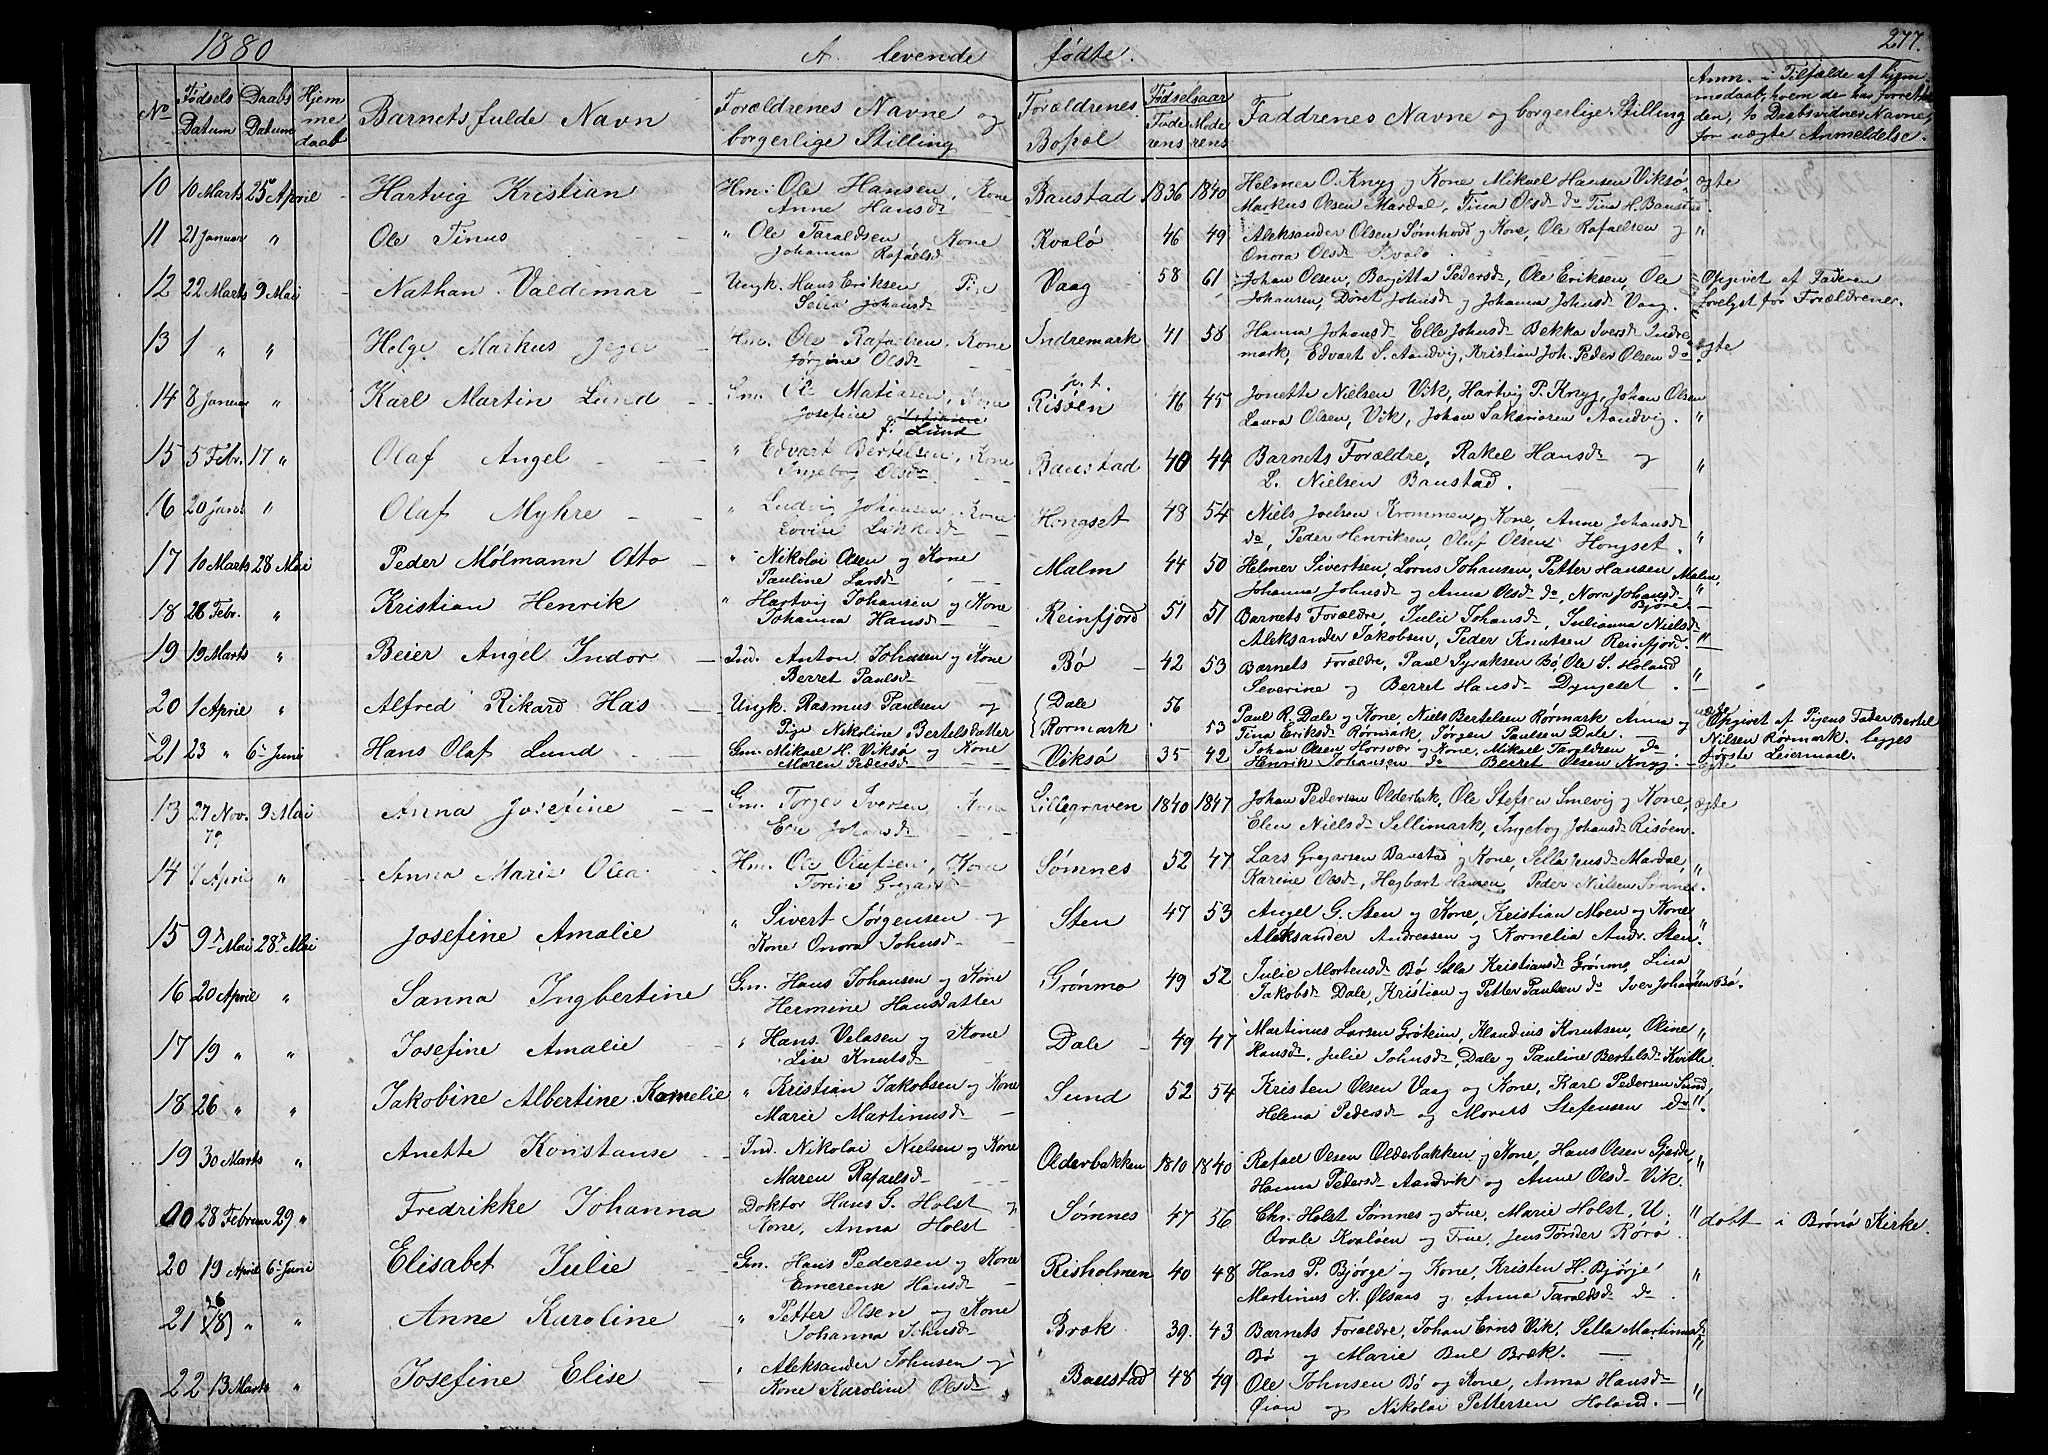 1880 A. levende fødte. 277.
No Fødsels Datum Daabs Datum Hjemmedaab Barnets fulde Navn Forældrenes Navne og borgerlige Stilling Forældrenes Bopæl Fødselsaar Faderens Moderens Faddrenes Navne og borgerlige Stilling Anm. i Tilfælde af hjemmedaab, hvem der har forrettet den, to Daabsvidners Navne, for uægte Anmeldelse.
10 10 Marts 25 April - Hartvig Kristian Hm. Ole Hansen, Kone Anne Hansd. Baustad 1836 1840 Helmer O. Knyg og Kone Mikael Hansen Viksø, Markus Olsen Mardal, Tina Olsd. do Tina H. Baustad. ægte
11 21 Januar " Ole Tinus " Ole Taraldsen, Kone Johanna Rafaelsd. Kvalø 46 49 Aleksander Olsen Sømhovd og Kone, Ole Rafaelsen og Onora Olsd. Kvalø. "
12 22 Marts 9 Mai - Nathan Valdemar Ungk. Hans Eriksen Pige Sella Johansd. Vaag 58 61 Johan Olsen, Bergitta Pedersd. Ole Eriksen, Ole Johansen, Doret Johnsd. og Johanna Johnsd. Vaag. Opgivet af Faderen lovlyst for Forældrene.
13 1 " " Helge Markus Jeger Hm. Ole Rafaelsen, Kone Jørgine Olsd. Indremark 41 58 Hanna Johansd. Elle Johnsd. Bekka Iversd. Indremark, Edvart S. Aandvig, Kristian Joh. Peder Olsen do ægte
14 8 Januar " Karl Martin Lund Gm. Ole Matiasen, Kone Josefine f. Lund p.t. Risøen 46 45 Jonette Nielsen Vik, Hartvig P. Knyg, Johan Olsen Laura Olsen, Vik, Johan Sakariasen Aandvig. "
15 5 Febr. 17 " Olaf Angel " Edvart Bertelsen, Kone Ingeborg Olsd. Baustad 40 44 Barnets Forældre, Rakel Hansd. og L. Nielsen Baustad. "
16 20 Janr. " Olaf Myhre " Ludvig Johansen, Kone Lovise Hongset 48 54 Niels Joelsen Krommen og Kone, Anne Johansd. do, Peder Henriksen, Oluf Olsen Hongset. "
17 10 Marts 28 Mai Peder Mølmann Otto " Nikolai Olsen og Kone Pauline Larsd. Malm 44 50 Helmer Sivertsen, Lorns Johansen, Petter Hansen Malm, Johanna Johnsd. og Anna Olsd. do, Nora Johansd. Bjøre "
18 28 Febr. " Kristian Henrik " Hartvig Johansen og Kone Johanna Hansd. Reinfjord 51 51 Barnets Forældre, Julie Johansd., Julianna Nielsd. Aleksander Jakobsen, Peder Knutsen Reinfjord. "
19 19 Marts " Beier Angel Indor Ind. Anton Johnsen og Kone Berret Paulsd. Bø 42 53 Barnets Forældre, Paul Syraksen Bø, Ole S. Holand Severine og Berret Hansd. Dyngeset. "
20 1 April " Alfred Rikard Has Ungk. Rasmus Paulsen og Pige Nikoline Bertelsdatter Dale Rormark 56 53 Paul R. Dale og Kone, Niels Bertelsen Rørmark, Anna og Tina Eriksd. Rørmark, Jørgen Paulsen Dale. uægte Opgivet af Pigens Fader Bertel Nilsen Rørmark. begges første Leiermaal.
21 23 " 6 Juni Hans Olaf Lund Gm. Mikael H. Viksø og Kone Maren Pedersd. Viksø 35 42 Johan Olsen Horsvær og Kone, Mikael Taraldsen do Henrik Johansen do Berret Olsen Knyg. ægte
13 27 Nov. 79 9 Mai Anna Josefine Gm. Torger Iversen, Kone Johansd. Lillegraven 1840 1847 Johan Pedersen Olderbak, Ole Stefsen Smevig og Kone, Elen Nielsd. Sellimark, Ingeborg Johansd. Risøen. ægte
14 7 April " Anna Marie Olea Hm. Ole Olufsen, Kone Gregarsd. Sømnes 52 47 Lars Gregarsen Baustad og Kone, Sella Jensd. Mardal, Karine Olsd., Hegbart Hansen, Peder Nielsen Sømnes. "
15 9d. Mai 28d. Mai Josefine Amalie " Sivert Jørgensen og Kone Onora Johnsd. Sten 47 53 Angel G. Sten og Kone, Kristian Moen og Kone Aleksander Andreasen og Kornelia Andr. Sten "
16 20 April " Sanna Ingbertine Gm. Hans Johansen og Kone Hermine Hansdatter Grønmo 49 52 Julie Mortensd. Bø Sella Kristiansd. Grønmo, Lina Jakobsd. Dale, Kristian og Petter Paulsen do Iver Johansen Bø.
17 19 " " Josefine Amalie " Hans Velasen og Kone Lise Knutsd. Dale 49 47 Martinus Larsen Grøteim, Klaudius Knutsen, Oline Hansd. Julie Johnsd. Dale og Pauline Bertelsd. Kvitle "
18 26 " " Jakobine Albertine Kornelie " Kristian Jakobsen og Kone Marie Martinusd. Sund 52 54 Kristen Olsen Vaag og Kone, Karl Pedersen Sund Helena Pedersd. og Morits Stefensen do "
19 30 Marts " Anette Konstanse Ind. Nikolai Nielsen og Kone Maren Rafaelsd. Olderbakken 1810 1840 Rafael Olsen Olderbakken og Kone, Hans Olsen Gjerde, Hanna Pedersd. Aandvik og Anne Olsd. Vik. "
28 Februar 29 " Fredrikke Johanna Doktor Hans G. Holst og Kone, Anna Holst Sømnes 47 56 Chr. Holst Sømnes og Frue, Marie Holst, U. Qvale Kvaløen og Frue, Jens Tønder Rørø. " døbt i Brønø Kirke.
20 19 April 6 Juni Elisabet Julie Gm. Hans Pedersen og Kone Emerense Hansd. Risholmen 40 48 Hans P. Bjørge og Kone, Kristen H. Bjørge Martinus N. Ølsaas og Anna Taraldsd. do. "
21 26 (18) " " Anne Karoline " Petter Olsen og Kone Johanna Johnsd. Bræk 39. 43 Barnets Forældre, Johan Erns Vik, Sella Martinusd. Bø og Marie Bul Bræk. "
22 13 Marts " Josefine Elise " Aleksander Johnsen og Kone Karoline Olsd. Baustad 48 49 Ole Johnsen Bø og Kone, Anna Hansd. Øian og Nikolai Pettersen Holand. "